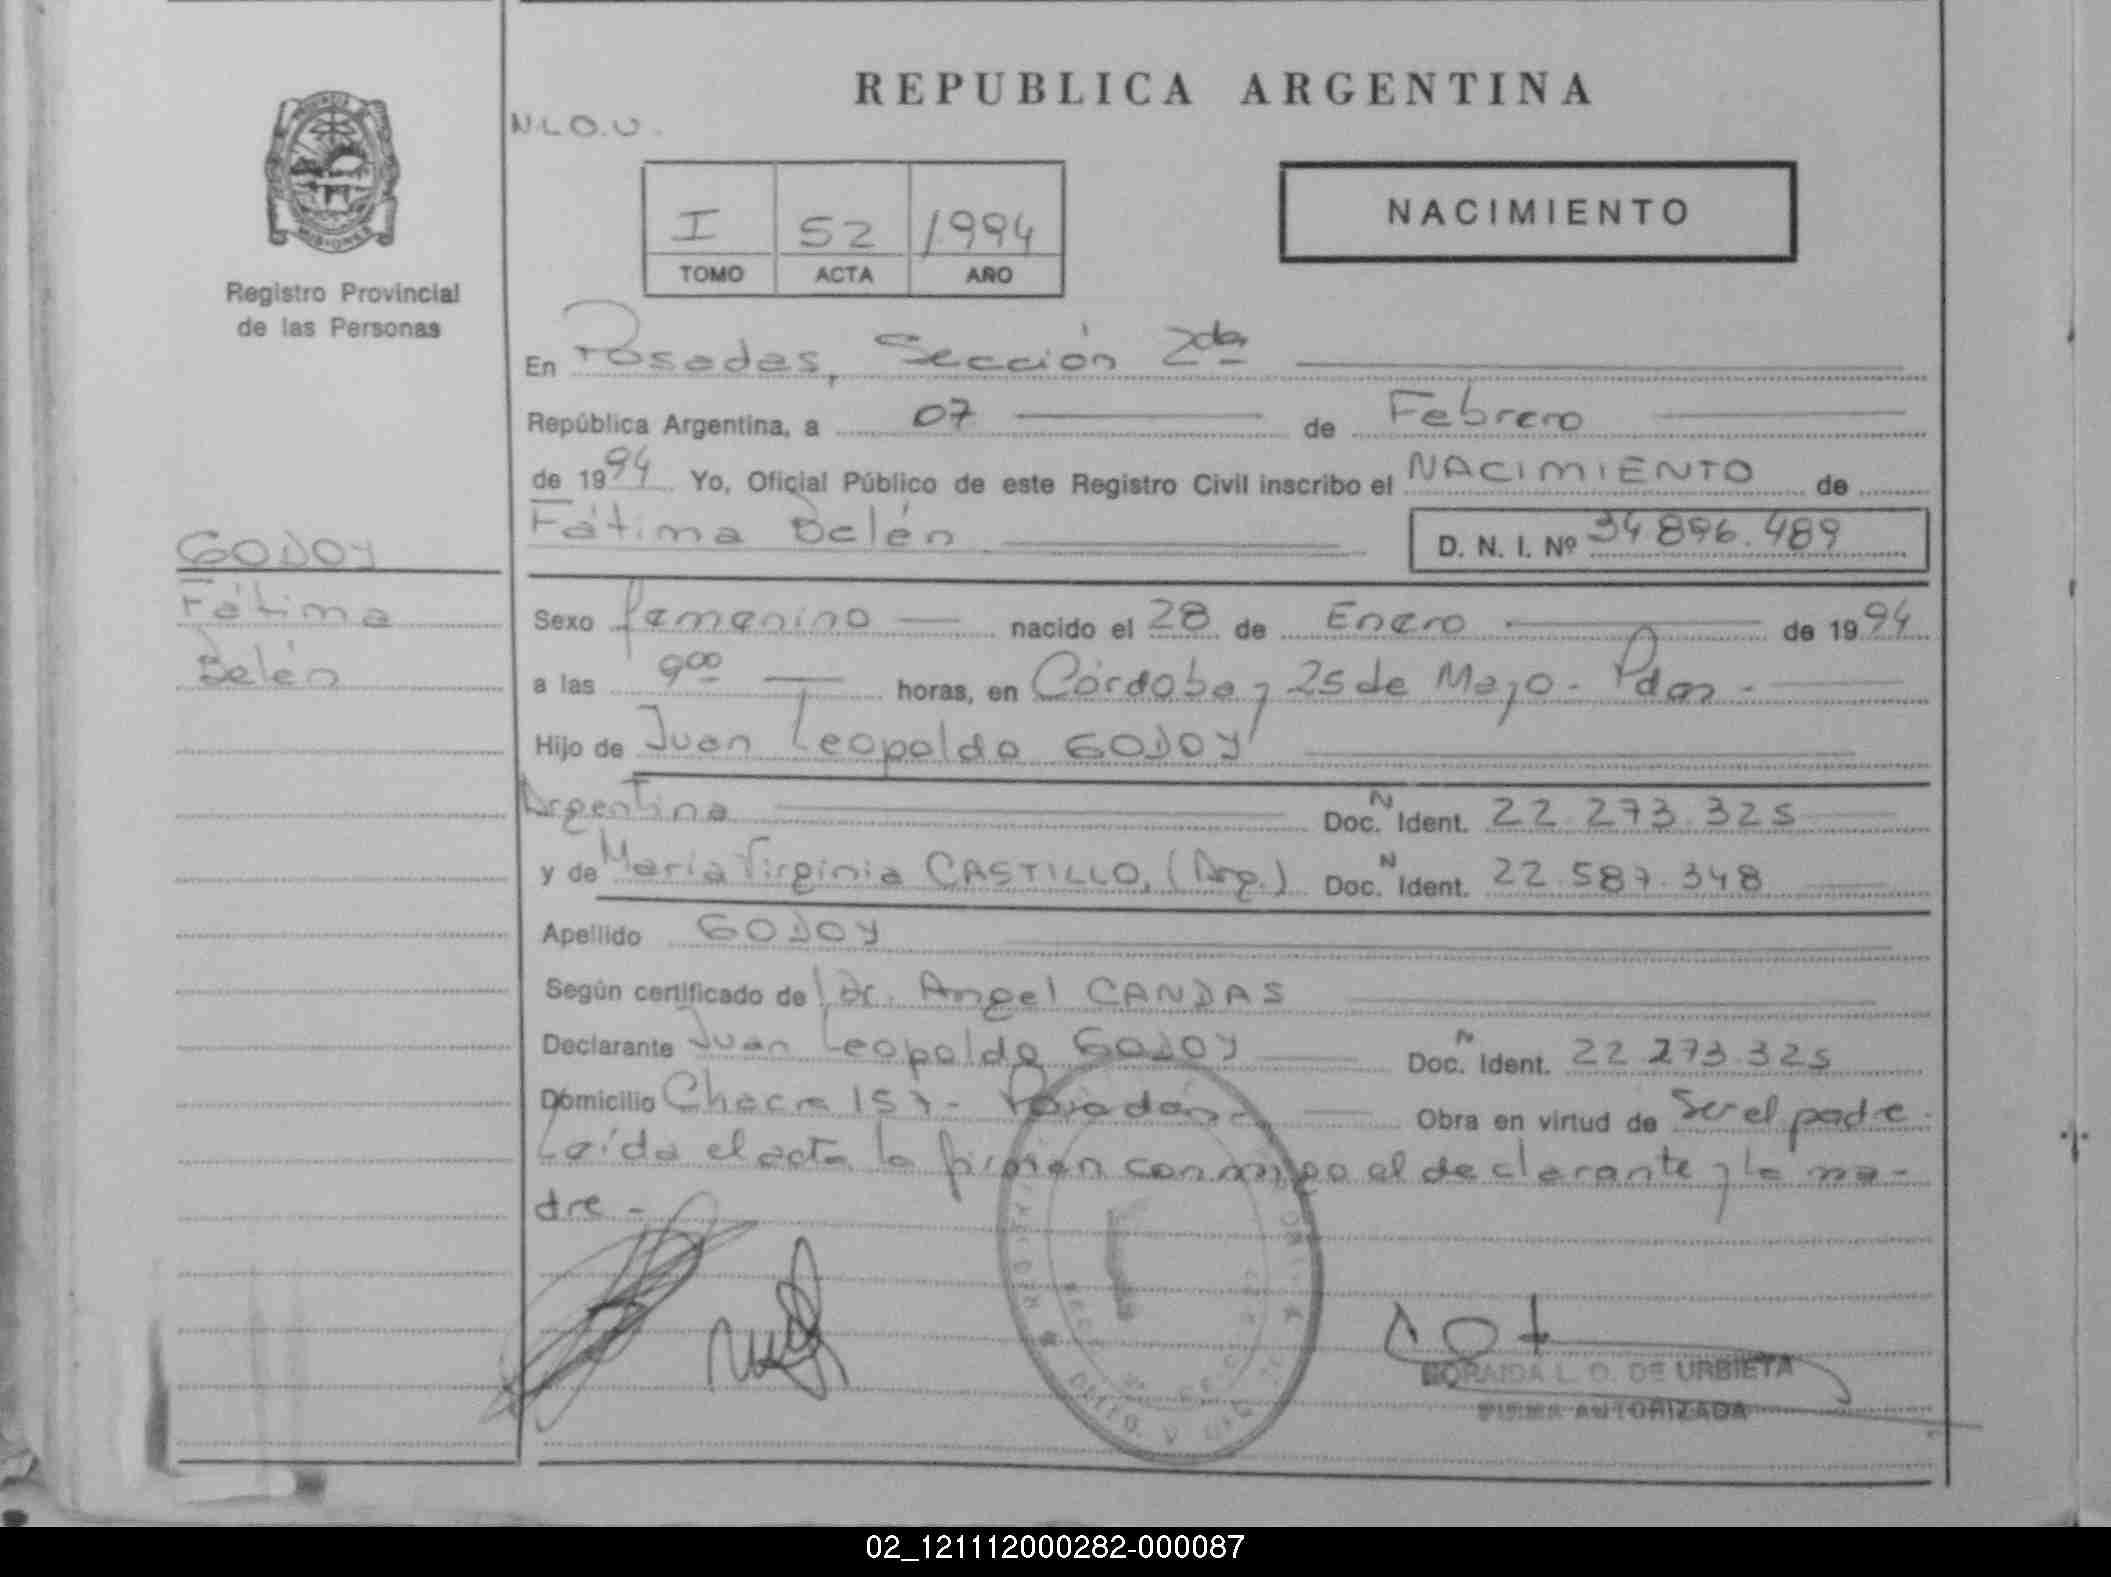 REPUBLICA ARGENTINA
N.L.O.U.
MISIONES
Registro Provincial
de las Personas
I 52 1994
TOMO ACTA AÑO
NACIMIENTO
En Posadas, Sección 2da
República Argentina, a 07 de Febrero
de 1994 Yo, Oficial Público de este Registro Civil inscribo el NACIMIENTO de
Fátima Belén D. N. I. Nº 34.896.489
GODOY
Fátima
Belén
Sexo femenino nacido el 28 de Enero de 1994
a las 9 00 horas, en Córdoba y 25 de Mayo - Pdas -
Hijo de Juan Leopoldo GODOY
Argentina Doc. N Ident. 22.273.325
y de María Virginia CASTILLO, (Arg.) Doc. N Ident. 22.587.348
Apellido GODOY
Según certificado de Dr. Angel CANDAS
Declarante Juan Leopoldo GODOY Doc. N Ident. 22.273.325
Domicilio Chacra 157 - Posadas Obra en virtud de Ser el padre.
Leída el acta la firman conmigo el declarante y la ma-
dre -
ZORAIDA L. O. DE URBIETA
FIRMA AUTORIZADA
02_121112000282-000087